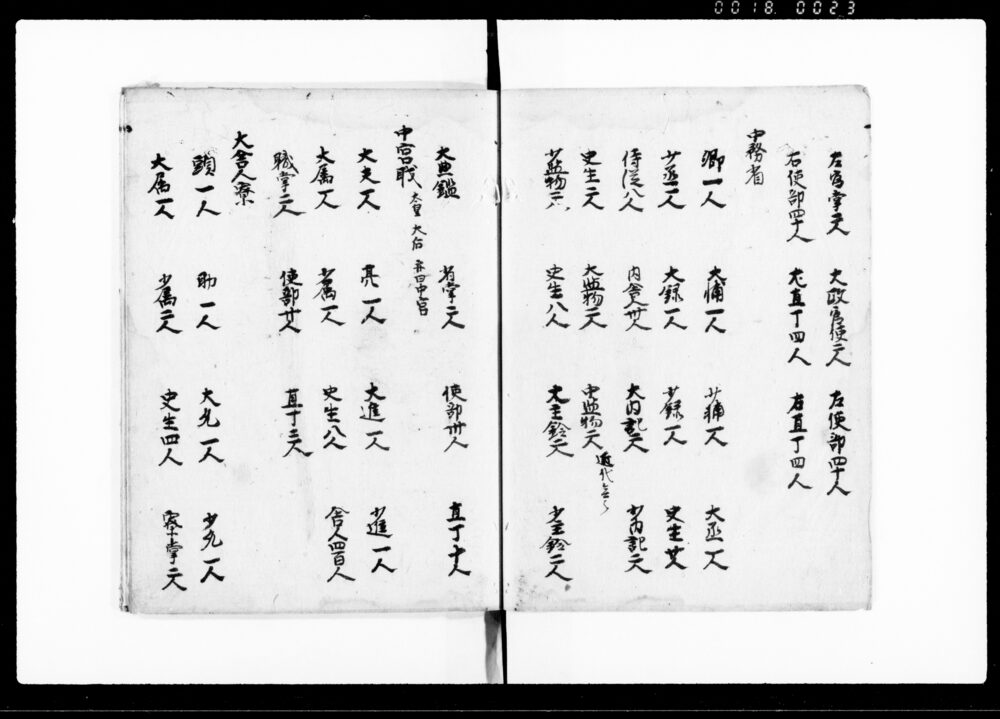 0018 0023
左官掌二人 大政官使二人 左使部四十人
右使部四十人 左直丁四人 右直丁四人
中務省
卿一人 大輔一人 少輔一人 大丞一人
少丞二人 大録一人 少録一人 史生廿人
侍従八人 内舎人卅人 大内記二人 少内記二人
史生二人 大監物二人 中監物二人 近代無之
少監物二人 史生八人 大主鈴二人 少主鈴二人
大典鑑 省掌二人 使部卅人 直丁十人
中宮職 大皇大后 亦曰中宮
大夫一人 亮一人 大進一人 少進一人
大属一人 少属一人 史生八人 舎人四百人
職掌二人 使部廿人 直丁三人
大舎人寮
頭一人 助一人 大允一人 少允一人
大属一人 少属二人 史生四人 寮掌二人